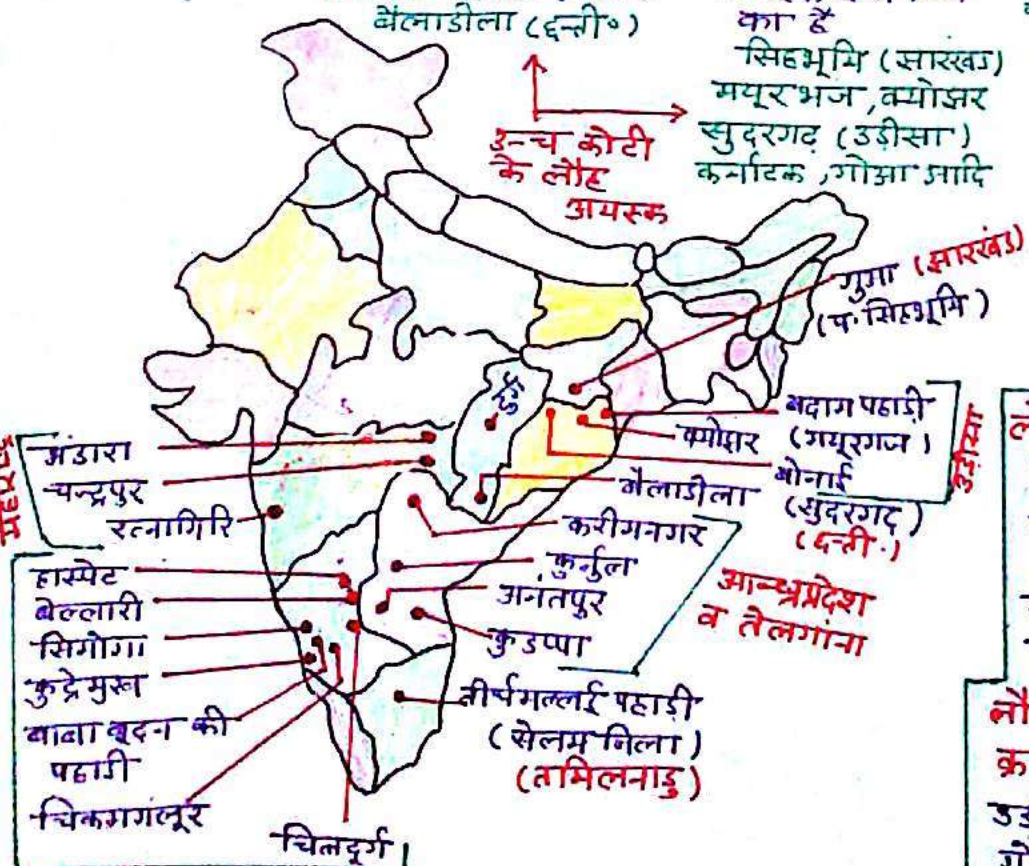 बैलाडीला (छत्ती॰)
का है
सिहभूमि (झारखंड)
मयूरभंज, क्योझर
सुदरगढ़ (उड़ीसा)
कर्नाटक, गोआ आदि
उच्च कोटी
के लौह
अयस्क
गुमा (झारखंड)
(प. सिहभूमि)
दुर्ग
बदाम पहाड़ी
(मयूरभज)
क्योझर
बोनाई
(सुदरगढ़)
(छत्ती.)
उड़ीसा
बैलाडीला
भंडारा
चन्द्रपुर
रत्नागिरि
करीमनगर
कुर्नुल
अनंतपुर
कुडप्पा
आन्ध्रप्रदेश
व तेलगांना
हास्पेट
बेल्लारी
सिमोगा
कुद्रेमुख
बाबा बूदन की
पहाडी
चिकमगलूर
चितदूर्ग
तीर्थमल्लई पहाड़ी
(सेलम जिला)
(तामिलनाडु)
लौ
क्र